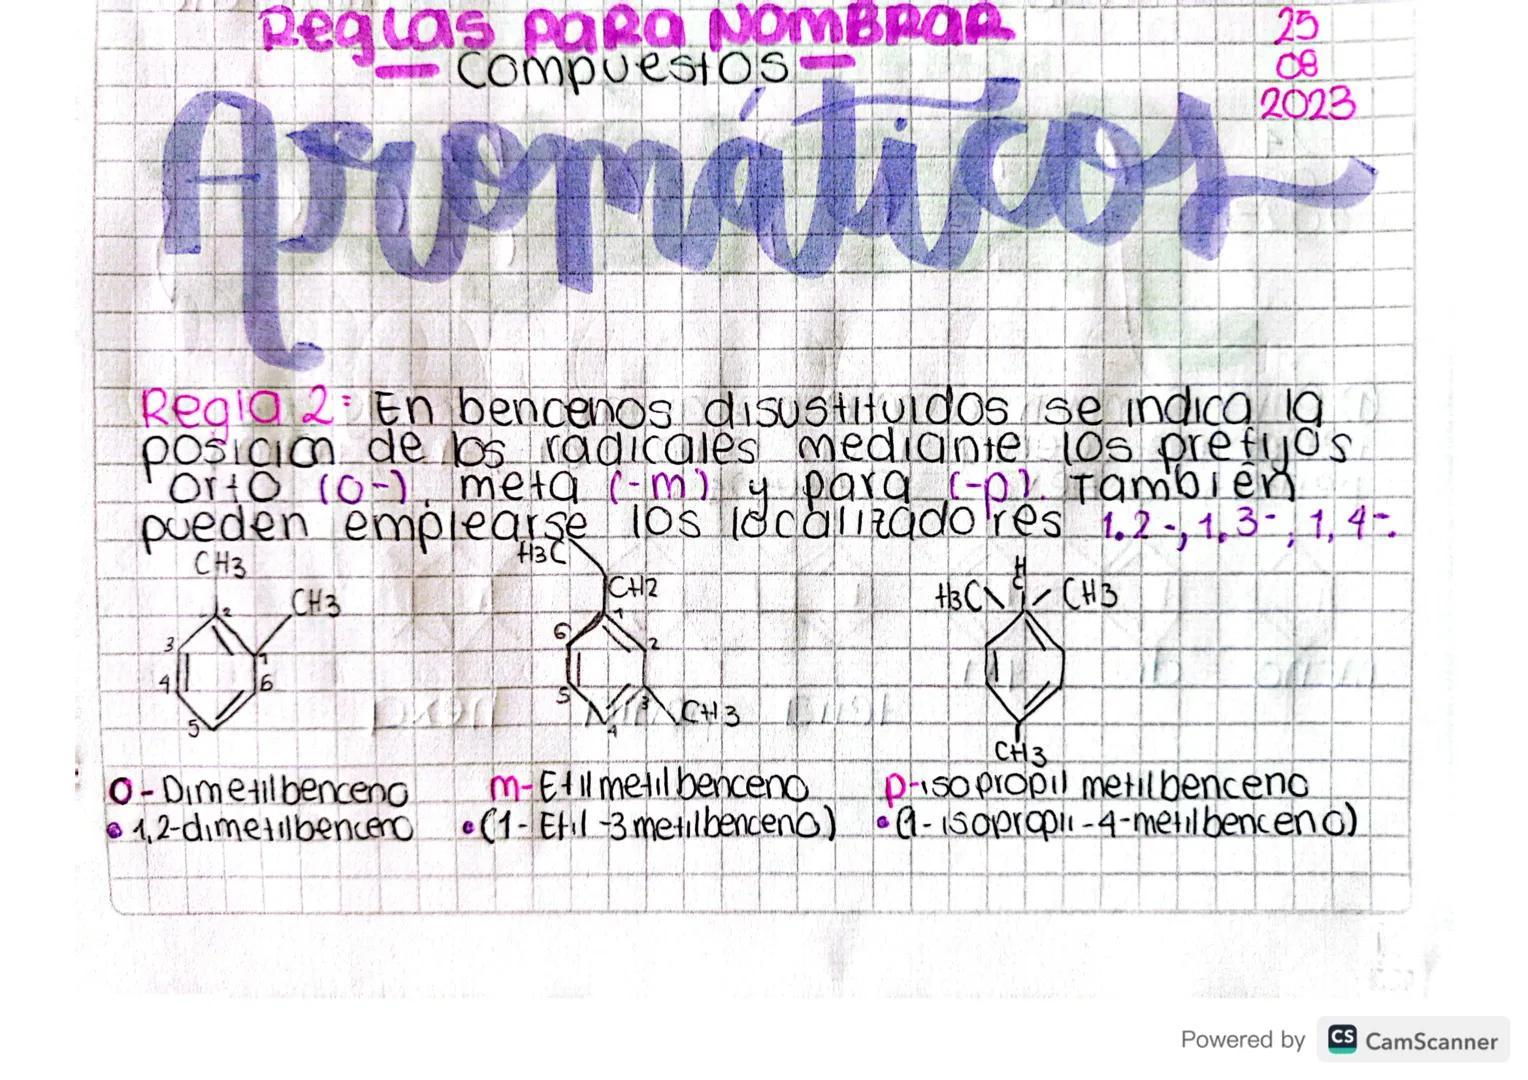 Reglas para nombrar
compuestos
25
08
2023
Aromáticos
Regla 2: En bencenos disustituidos se indica la
posición de los radicales mediante los prefijos
orto (o-), meta (-m) y para (-p). También
pueden emplearse los localizadores 1.2-, 1,3-, 1,4-.
CH3
CH3
2
1
3
4
5
6
H3C
CH2
1
6
2
5
3
4
CH3
H
H3C C CH3
CH3
o-Dimetilbenceno
m-Etilmetilbenceno
p-isopropil metilbenceno
• 1,2-dimetilbenceno
• (1-Etil-3metilbenceno)
• (1-isopropil-4-metilbenceno)
Powered by CS CamScanner